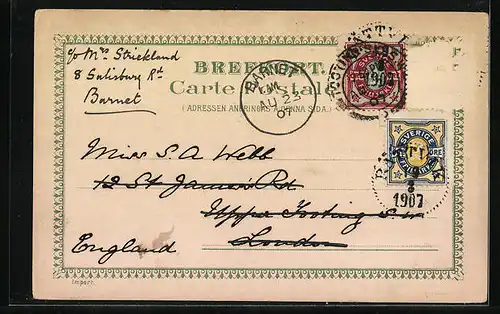 c/o Mrs Strickland
8 Salisbury Rd
Barnet
BREFKORT.
Carte Postale
(ADRESSEN ANBRINGAS Å DENNA SIDA.)
BARNET
AU 23
07
1907
SVERIGE
1907
Miss S. A. Webb
12 St James's Rd
Upper Tooting S.W
London
England
Import.